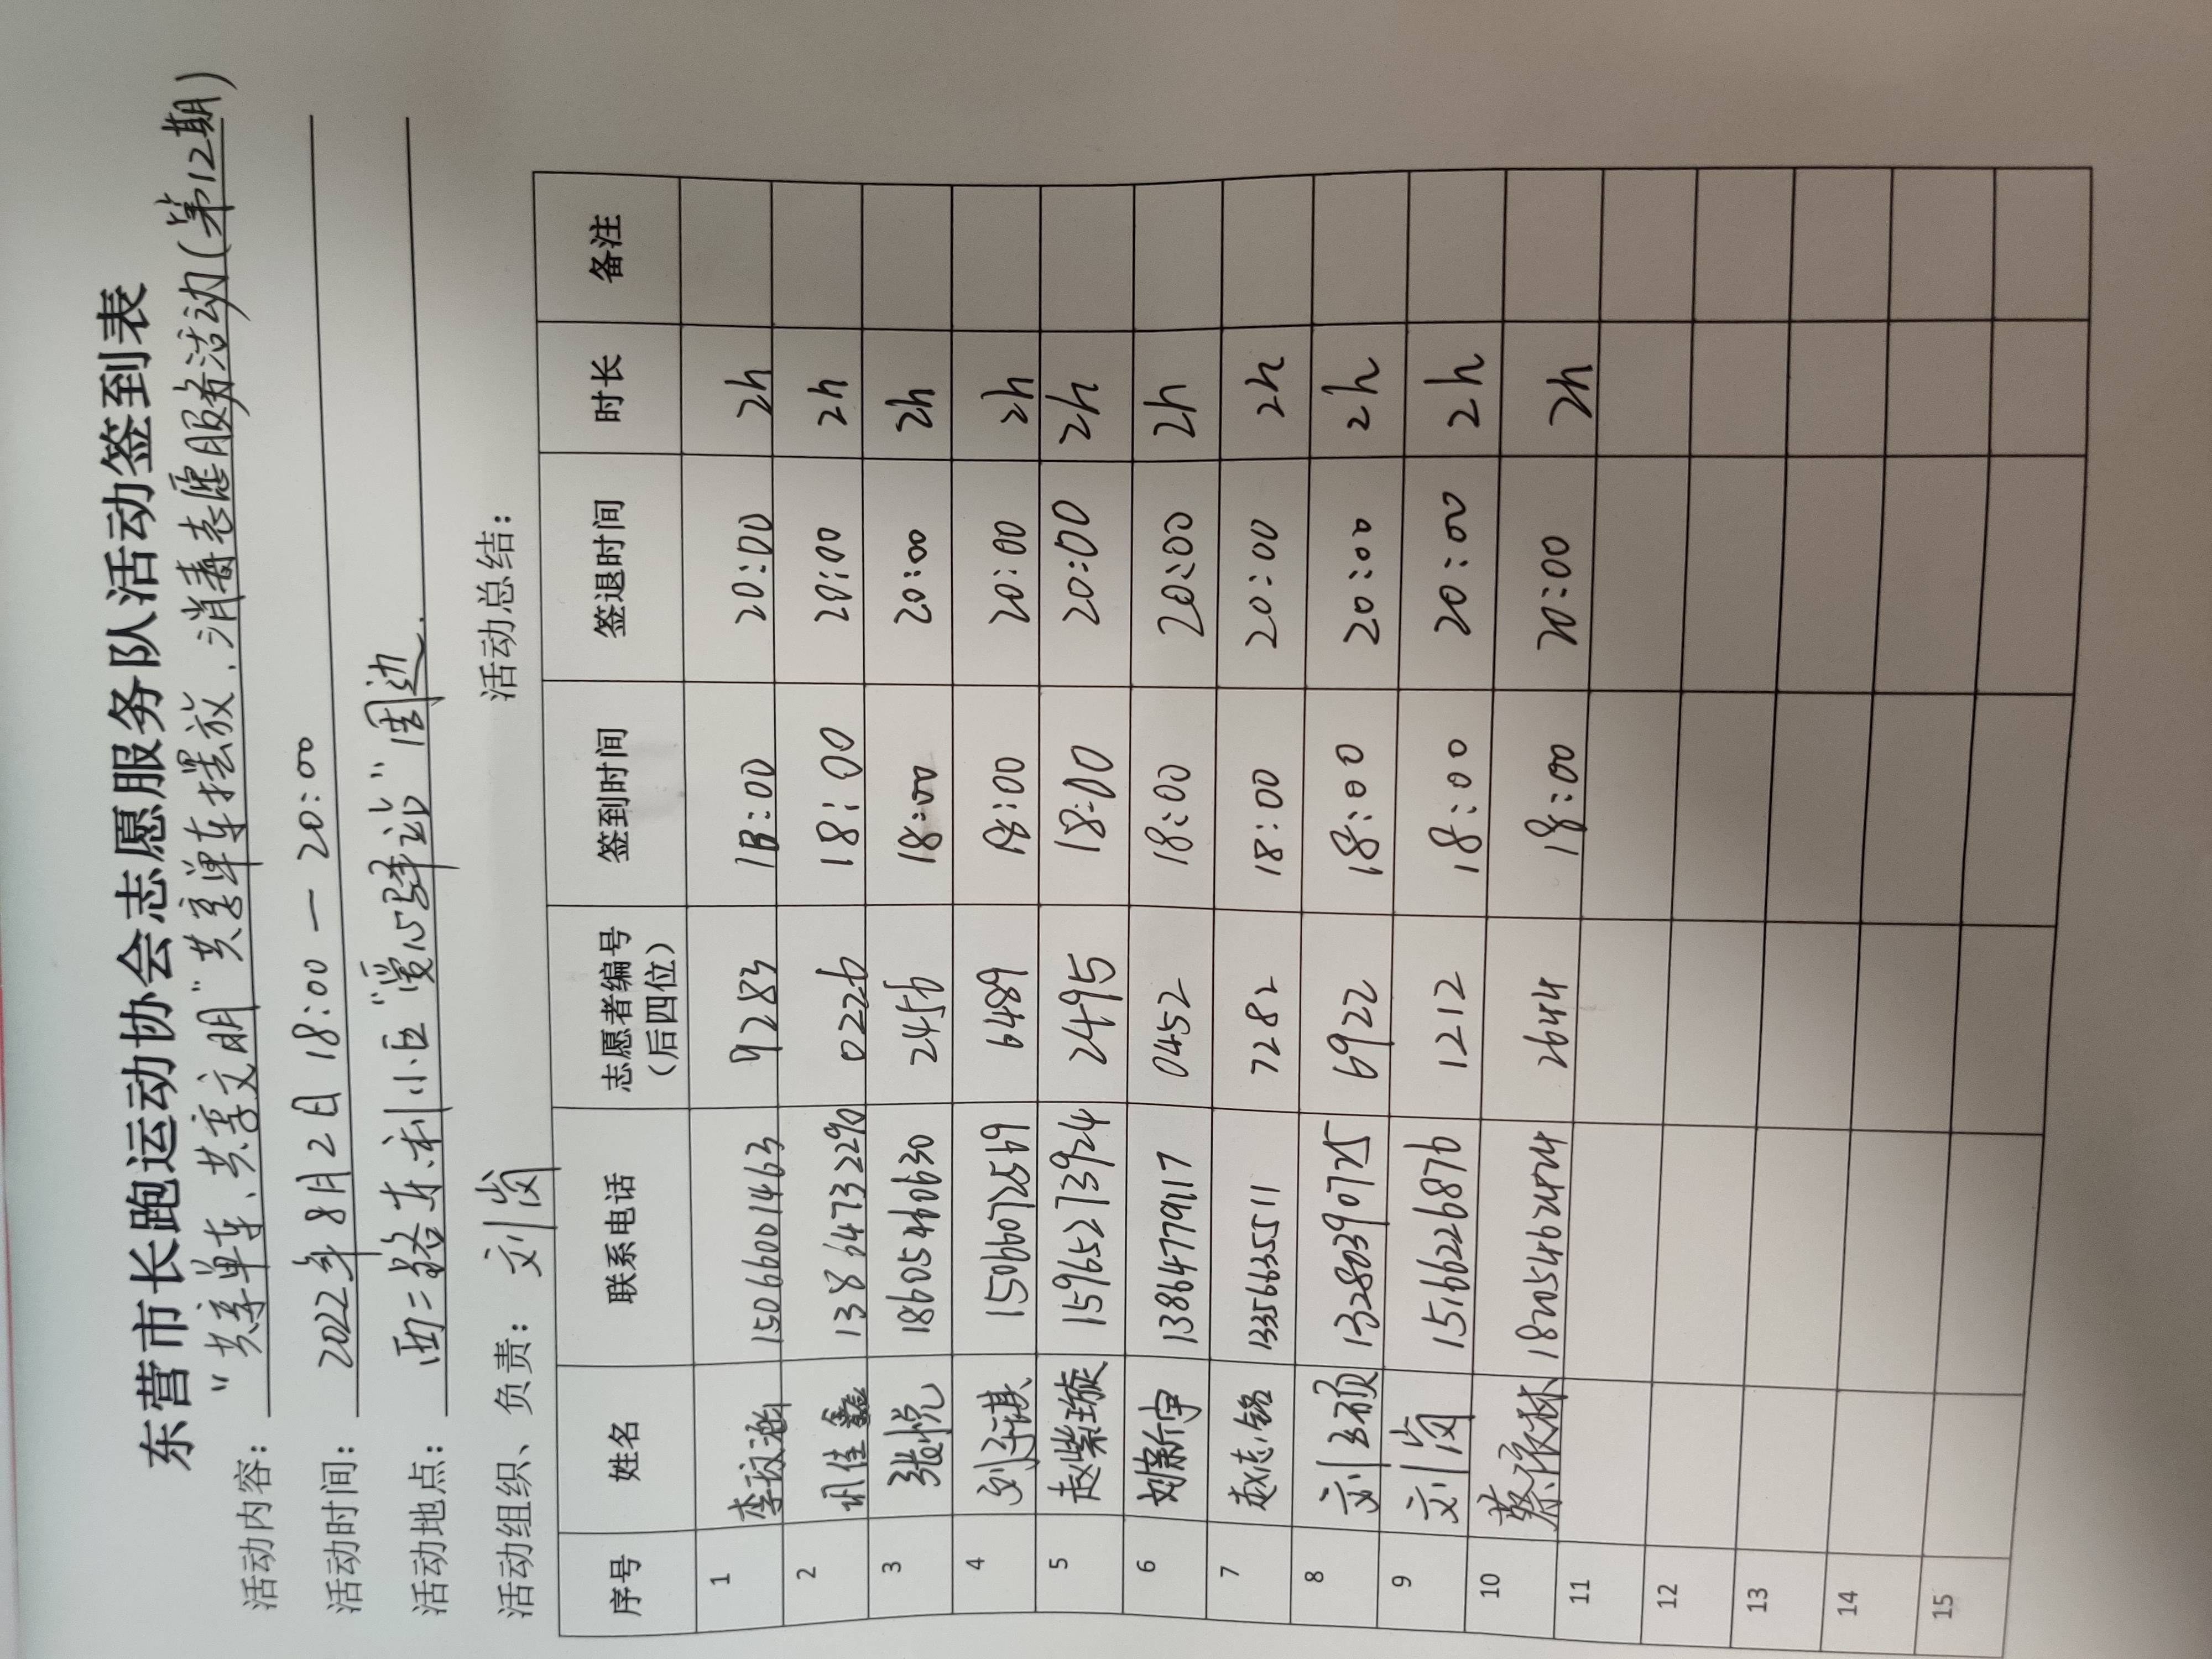 东营市长跑运动协会志愿服务队活动签到表
活动内容： “共享单车、共享文明”共享单车摆放、消毒志愿服务活动(第12期)
活动时间： 2022年8月2日 18:00 — 20:00
活动地点： 西二路东利小区“爱心驿站”周边.
活动组织、负责： 刘岗 活动总结：
序号 姓名 联系电话 志愿者编号（后四位） 签到时间 签退时间 时长 备注
1 李玟涵 15066001463 9283 18:00 20:00 2h
2 周佳鑫 13864732290 0226 18:00 20:00 2h
3 张悦 18605460630 2456 18:00 20:00 2h
4 刘子琪 15066072569 6489 18:00 20:00 2h
5 赵紫璇 15965273924 2495 18:00 20:00 2h
6 刘新宇 13864779117 0452 18:00 20:00 2h
7 赵志铭 13356635511 7282 18:00 20:00 2h
8 刘硕 13280390725 6922 18:00 20:00 2h
9 刘岗 15166226876 1212 18:00 20:00 2h
10 蔡依林 18205462424 2644 18:00 20:00 2h
11
12
13
14
15